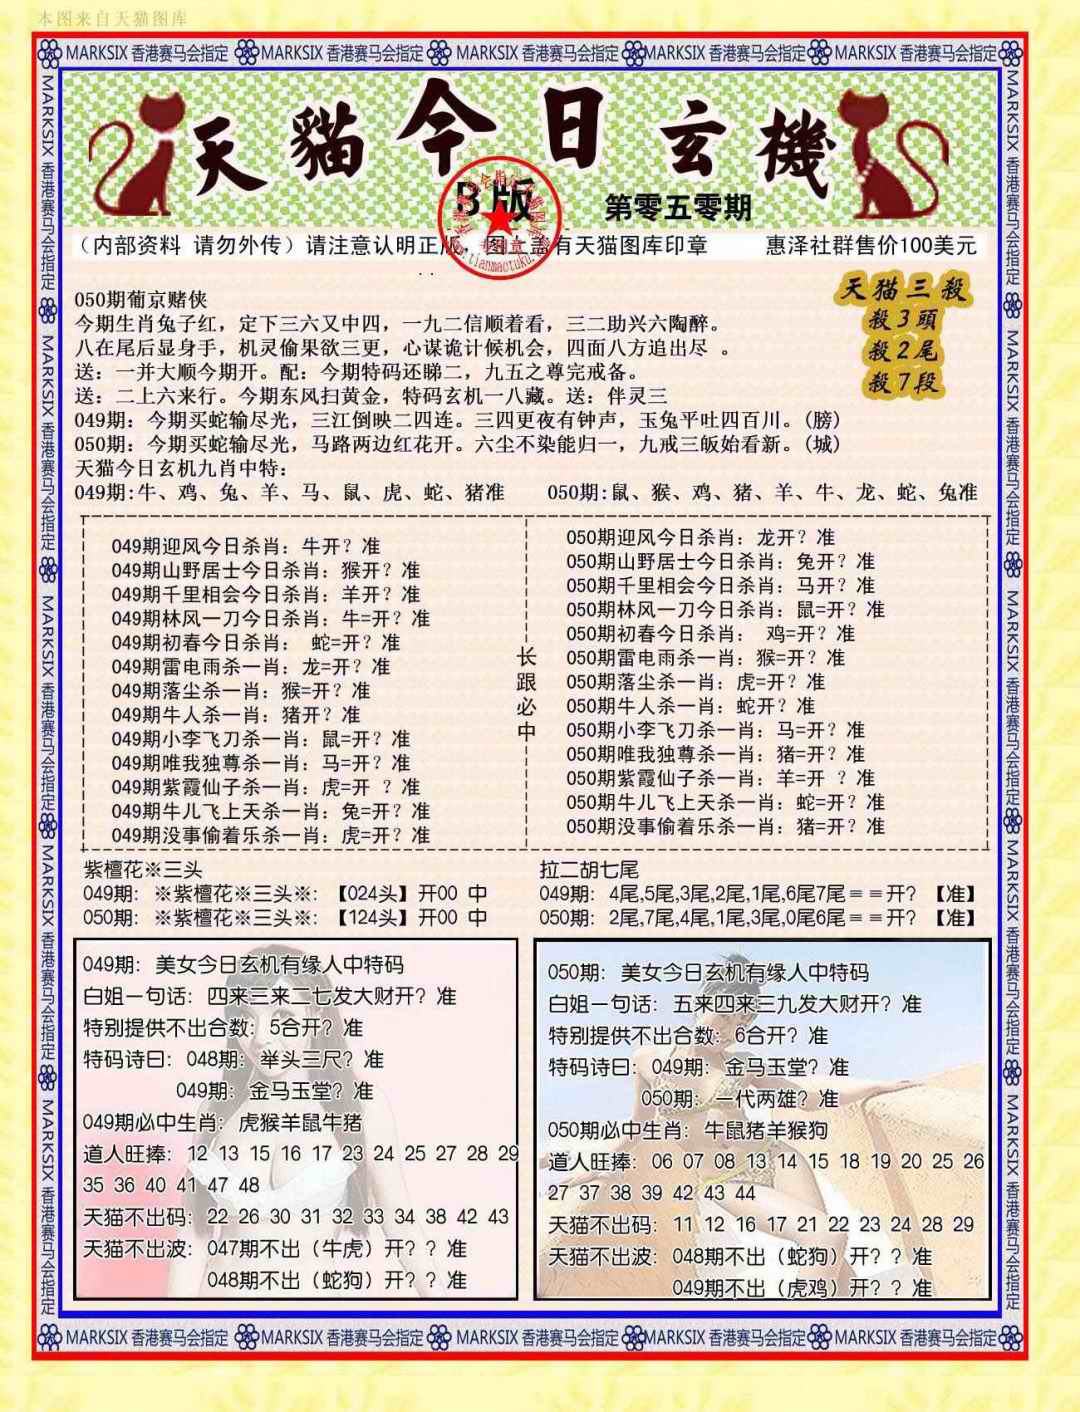 本图来自天猫图库
MARKSIX 香港赛马会指定 MARKSIX 香港赛马会指定 MARKSIX 香港赛马会指定 MARKSIX 香港赛马会指定 MARKSIX 香港赛马会指定
天貓今日玄機
B版
第零五零期
（内部资料 请勿外传）请注意认明正版，图上盖有天猫图库印章 惠泽社群售价100美元
www.tianmaotuku.com
天猫三殺
殺3頭
殺2尾
殺7段
050期葡京赌侠
今期生肖兔子红，定下三六又中四，一九二信顺着看，三二助兴六陶醉。
八在尾后显身手，机灵偷果欲三更，心谋诡计候机会，四面八方追出尽 。
送：一并大顺今期开。配：今期特码还睇二，九五之尊完戒备。
送：二上六来行。今期东风扫黄金，特码玄机一八藏。送：伴灵三
049期：今期买蛇输尽光，三江倒映二四连。三四更夜有钟声，玉兔平吐四百川。(膀)
050期：今期买蛇输尽光，马路两边红花开。六尘不染能归一，九戒三皈始看新。(城)
天猫今日玄机九肖中特：
049期:牛、鸡、兔、羊、马、鼠、虎、蛇、猪准 050期:鼠、猴、鸡、猪、羊、牛、龙、蛇、兔准
049期迎风今日杀肖：牛开？准
049期山野居士今日杀肖：猴开？准
049期千里相会今日杀肖：羊开？准
049期林风一刀今日杀肖：牛=开？准
049期初春今日杀肖： 蛇=开？准
049期雷电雨杀一肖：龙=开？准
049期落尘杀一肖：猴=开？准
049期牛人杀一肖：猪开？准
049期小李飞刀杀一肖：鼠=开？准
049期唯我独尊杀一肖：马=开？准
049期紫霞仙子杀一肖：虎=开 ？准
049期牛儿飞上天杀一肖：兔=开？准
049期没事偷着乐杀一肖：虎=开？准
长跟必中
050期迎风今日杀肖：龙开？准
050期山野居士今日杀肖：兔开？准
050期千里相会今日杀肖：马开？准
050期林风一刀今日杀肖：鼠=开？准
050期初春今日杀肖： 鸡=开？准
050期雷电雨杀一肖：猴=开？准
050期落尘杀一肖：虎=开？准
050期牛人杀一肖：蛇开？准
050期小李飞刀杀一肖：马=开？准
050期唯我独尊杀一肖：猪=开？准
050期紫霞仙子杀一肖：羊=开 ？准
050期牛儿飞上天杀一肖：蛇=开？准
050期没事偷着乐杀一肖：猪=开？准
紫檀花※三头
049期：※紫檀花※三头※：【024头】开00 中
050期：※紫檀花※三头※：【124头】开00 中
拉二胡七尾
049期：4尾,5尾,3尾,2尾,1尾,6尾7尾＝＝开？【准】
050期：2尾,7尾,4尾,1尾,3尾,0尾6尾＝＝开？【准】
049期：美女今日玄机有缘人中特码
白姐一句话：四来三来二七发大财开？准
特别提供不出合数：5合开？准
特码诗曰：048期：举头三尺？准
049期：金马玉堂？准
049期必中生肖：虎猴羊鼠牛猪
道人旺捧：12 13 15 16 17 23 24 25 27 28 29
35 36 40 41 47 48
天猫不出码：22 26 30 31 32 33 34 38 42 43
天猫不出波：047期不出（牛虎）开？？准
048期不出（蛇狗）开？？准
050期：美女今日玄机有缘人中特码
白姐一句话：五来四来三九发大财开？准
特别提供不出合数：6合开？准
特码诗曰：049期：金马玉堂？准
050期：一代两雄？准
050期必中生肖：牛鼠猪羊猴狗
道人旺捧：06 07 08 13 14 15 18 19 20 25 26
27 37 38 39 42 43 44
天猫不出码：11 12 16 17 21 22 23 24 28 29
天猫不出波：048期不出（蛇狗）开？？准
049期不出（虎鸡）开？？准
MARKSIX 香港赛马会指定 MARKSIX 香港赛马会指定 MARKSIX 香港赛马会指定 MARKSIX 香港赛马会指定 MARKSIX 香港赛马会指定
MARKSIX 香港赛马会指定 MARKSIX 香港赛马会指定 MARKSIX 香港赛马会指定 MARKSIX 香港赛马会指定 MARKSIX 香港赛马会指定
MARKSIX 香港赛马会指定 MARKSIX 香港赛马会指定 MARKSIX 香港赛马会指定 MARKSIX 香港赛马会指定 MARKSIX 香港赛马会指定